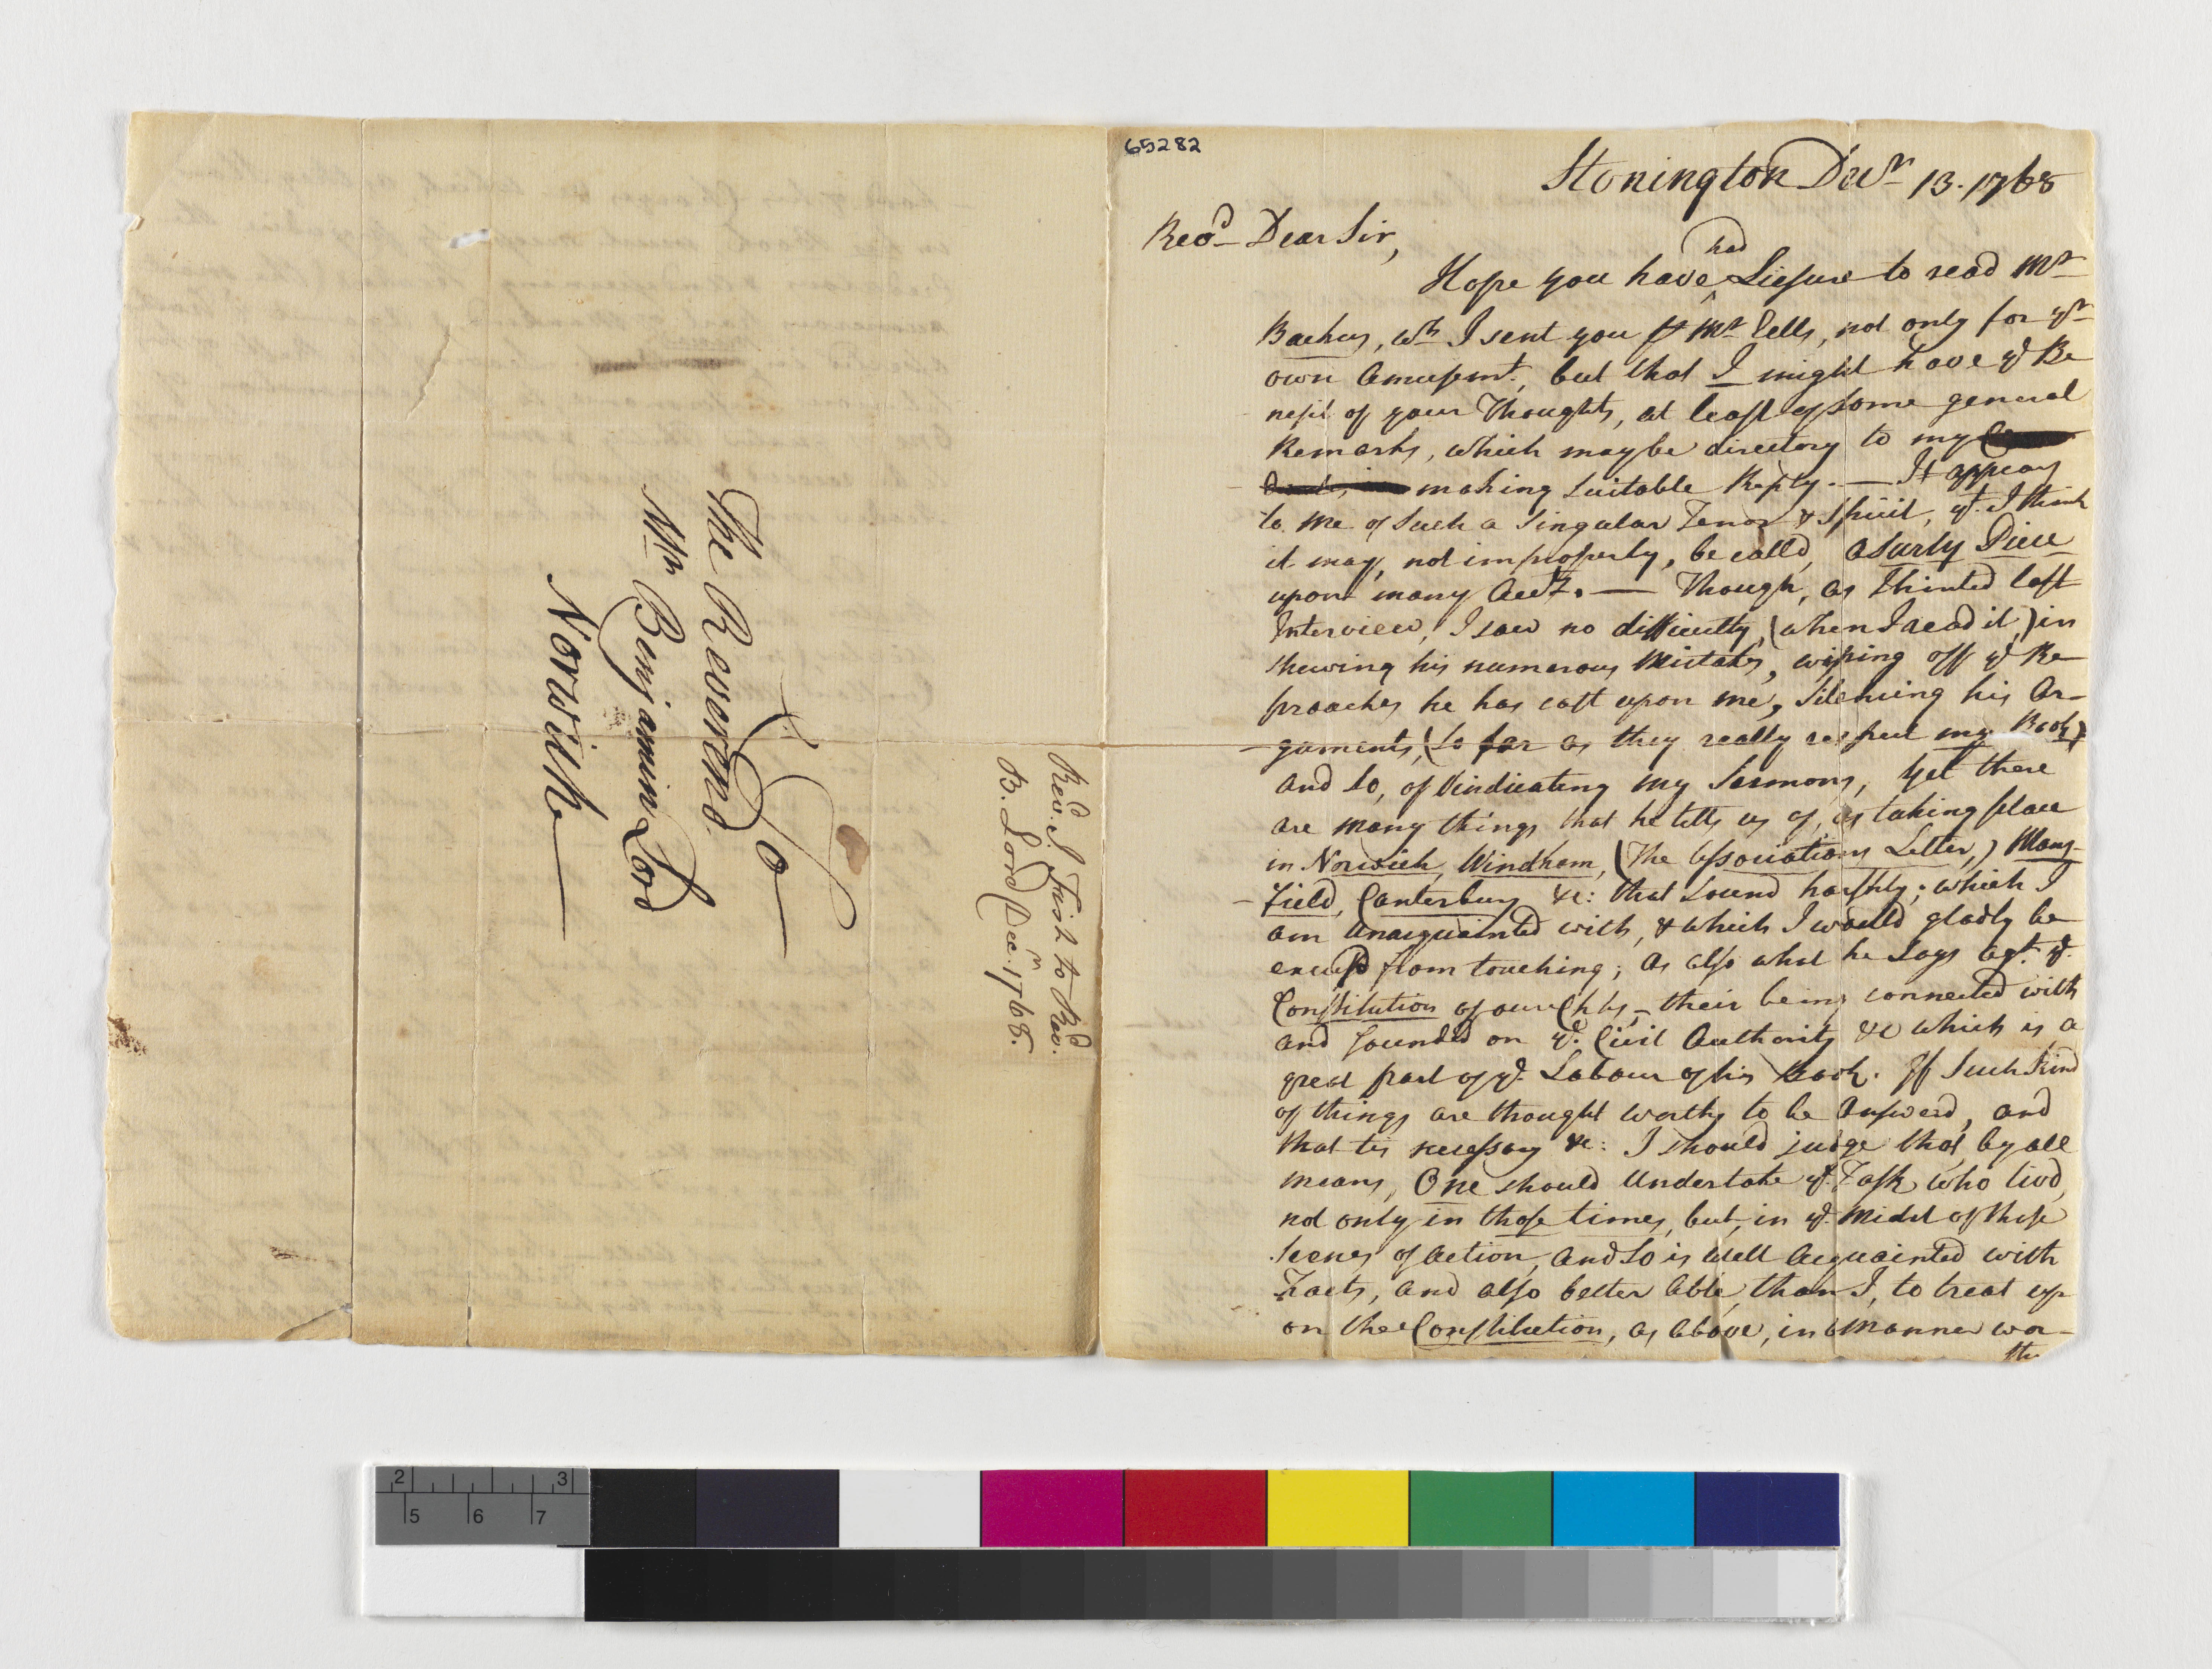 65282
Stonington Decr 13. 1768
Revd Dear Sir,
had
Hope you have ^ Liesure to read Mr
Backus, wh I sent you ⅌ Mr Eells, not only for yr
own Amusemt., but that I might have ye Be
nefit of your Thoughts, at least of some general
Remarks, which may be directory to my
making suitable Reply. — It appears
to me of such a singular Tenor & Spirit, yt. I think
it may, not improperly, be calld, a Surly Piece
upon many Acctts. — Though, as I hinted last
Interview, I saw no difficulty, (when I read it,) in
shewing his numerous Mistakes, wiping off ye Re
proaches he has cast upon me, Silencing his Ar-
guments, (so far as they really respect my Book,)
and so, of Vindicating my Sermons, Yet there
are many things that he tells us of, as taking place
in Norwich, Windham, (The Associations Letter,) Mans-
field, Canterbury &c: that sound harshly; which I
am Unacquainted with, & which I would gladly be
excusd from touching; as also what he says agt. ye.
Constitution of our Chhs, — their being connected with
and founded on ye. Civil Authority &c which is a
great part of ye. Labour of his Book. If Such Kind
of things are thought worthy to be Answerd, and
that tis necessary &c: I should judge that, by all
means, One should Undertake ye. Task who livd,
not only in those times, but, in ye. Midst of those
Scenes of Action, and so is well Acquainted with
Facts, and also better Able, than I, to treat up
on the Constitution, as Above, in a Manner wor-
thy
To
The Reverend
Mr. Benjamin Lord
Norwich
Revd. J. Fish to Revd.
B. Lord Decr. 1768.
2 3
5 6 7